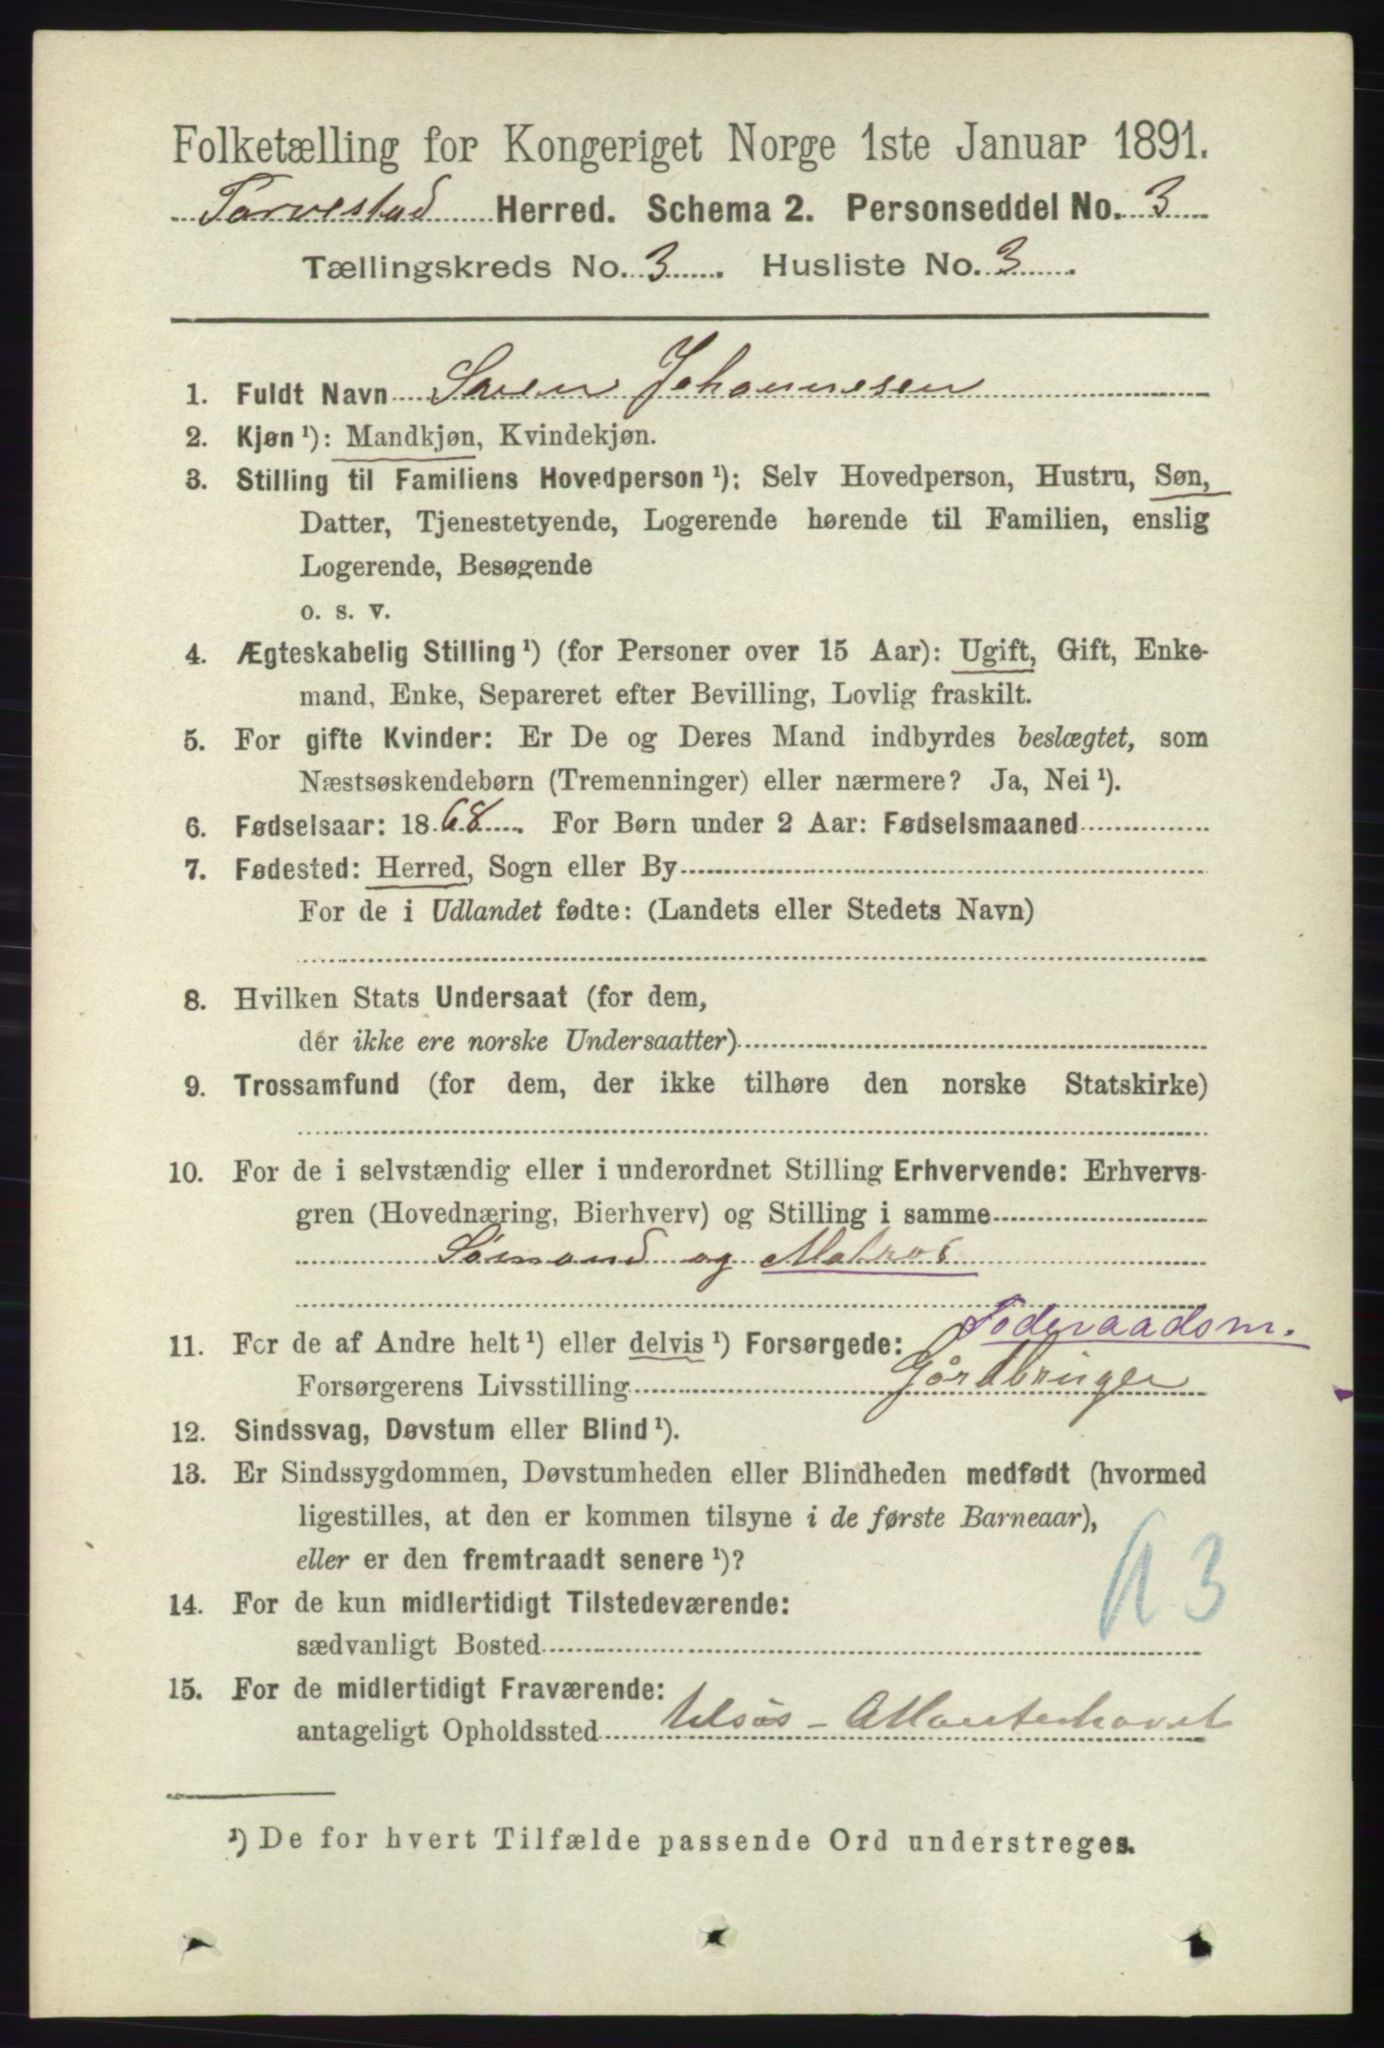 Folketælling for Kongeriget Norge 1ste Januar 1891.
Torvestad Herred. Schema 2. Personseddel No. 3
Tællingskreds No. 3 Husliste No. 3
1. Fuldt Navn Søren Johannesen
2. Kjøn ¹): Mandkjøn, Kvindekjøn.
3. Stilling til Familiens Hovedperson ¹): Selv Hovedperson, Hustru, Søn,
Datter, Tjenestetyende, Logerende hørende til Familien, enslig
Logerende, Besøgende
o. s. v.
4. Ægteskabelig Stilling ¹) (for Personer over 15 Aar): Ugift, Gift, Enke-
mand, Enke, Separeret efter Bevilling, Lovlig fraskilt.
5. For gifte Kvinder: Er De og Deres Mand indbyrdes beslægtet, som
Næstsøskendebørn (Tremenninger) eller nærmere? Ja, Nei ¹).
6. Fødselsaar: 1868. For Børn under 2 Aar: Fødselsmaaned
7. Fødested: Herred, Sogn eller By
For de i Udlandet fødte: (Landets eller Stedets Navn)
8. Hvilken Stats Undersaat (for dem,
der ikke ere norske Undersaatter)
9. Trossamfund (for dem, der ikke tilhøre den norske Statskirke)
10. For de i selvstændig eller i underordnet Stilling Erhvervende: Erhvervs-
gren (Hovednæring, Bierhverv) og Stilling i samme
Sömand og Matros
Föderaadsm.
11. For de af Andre helt ¹) eller delvis ¹) Forsørgede:
Forsørgerens Livsstilling Gårdbruger
12. Sindssvag, Døvstum eller Blind ¹).
13. Er Sindssygdommen, Døvstumheden eller Blindheden medfødt (hvormed
ligestilles, at den er kommen tilsyne i de første Barneaar),
eller er den fremtraadt senere ¹)?
14. For de kun midlertidigt Tilstedeværende:
sædvanligt Bosted
15. For de midlertidigt Fraværende:
antageligt Opholdssted tilsös - Atlanterhavet
¹) De for hvert Tilfælde passende Ord understreges.